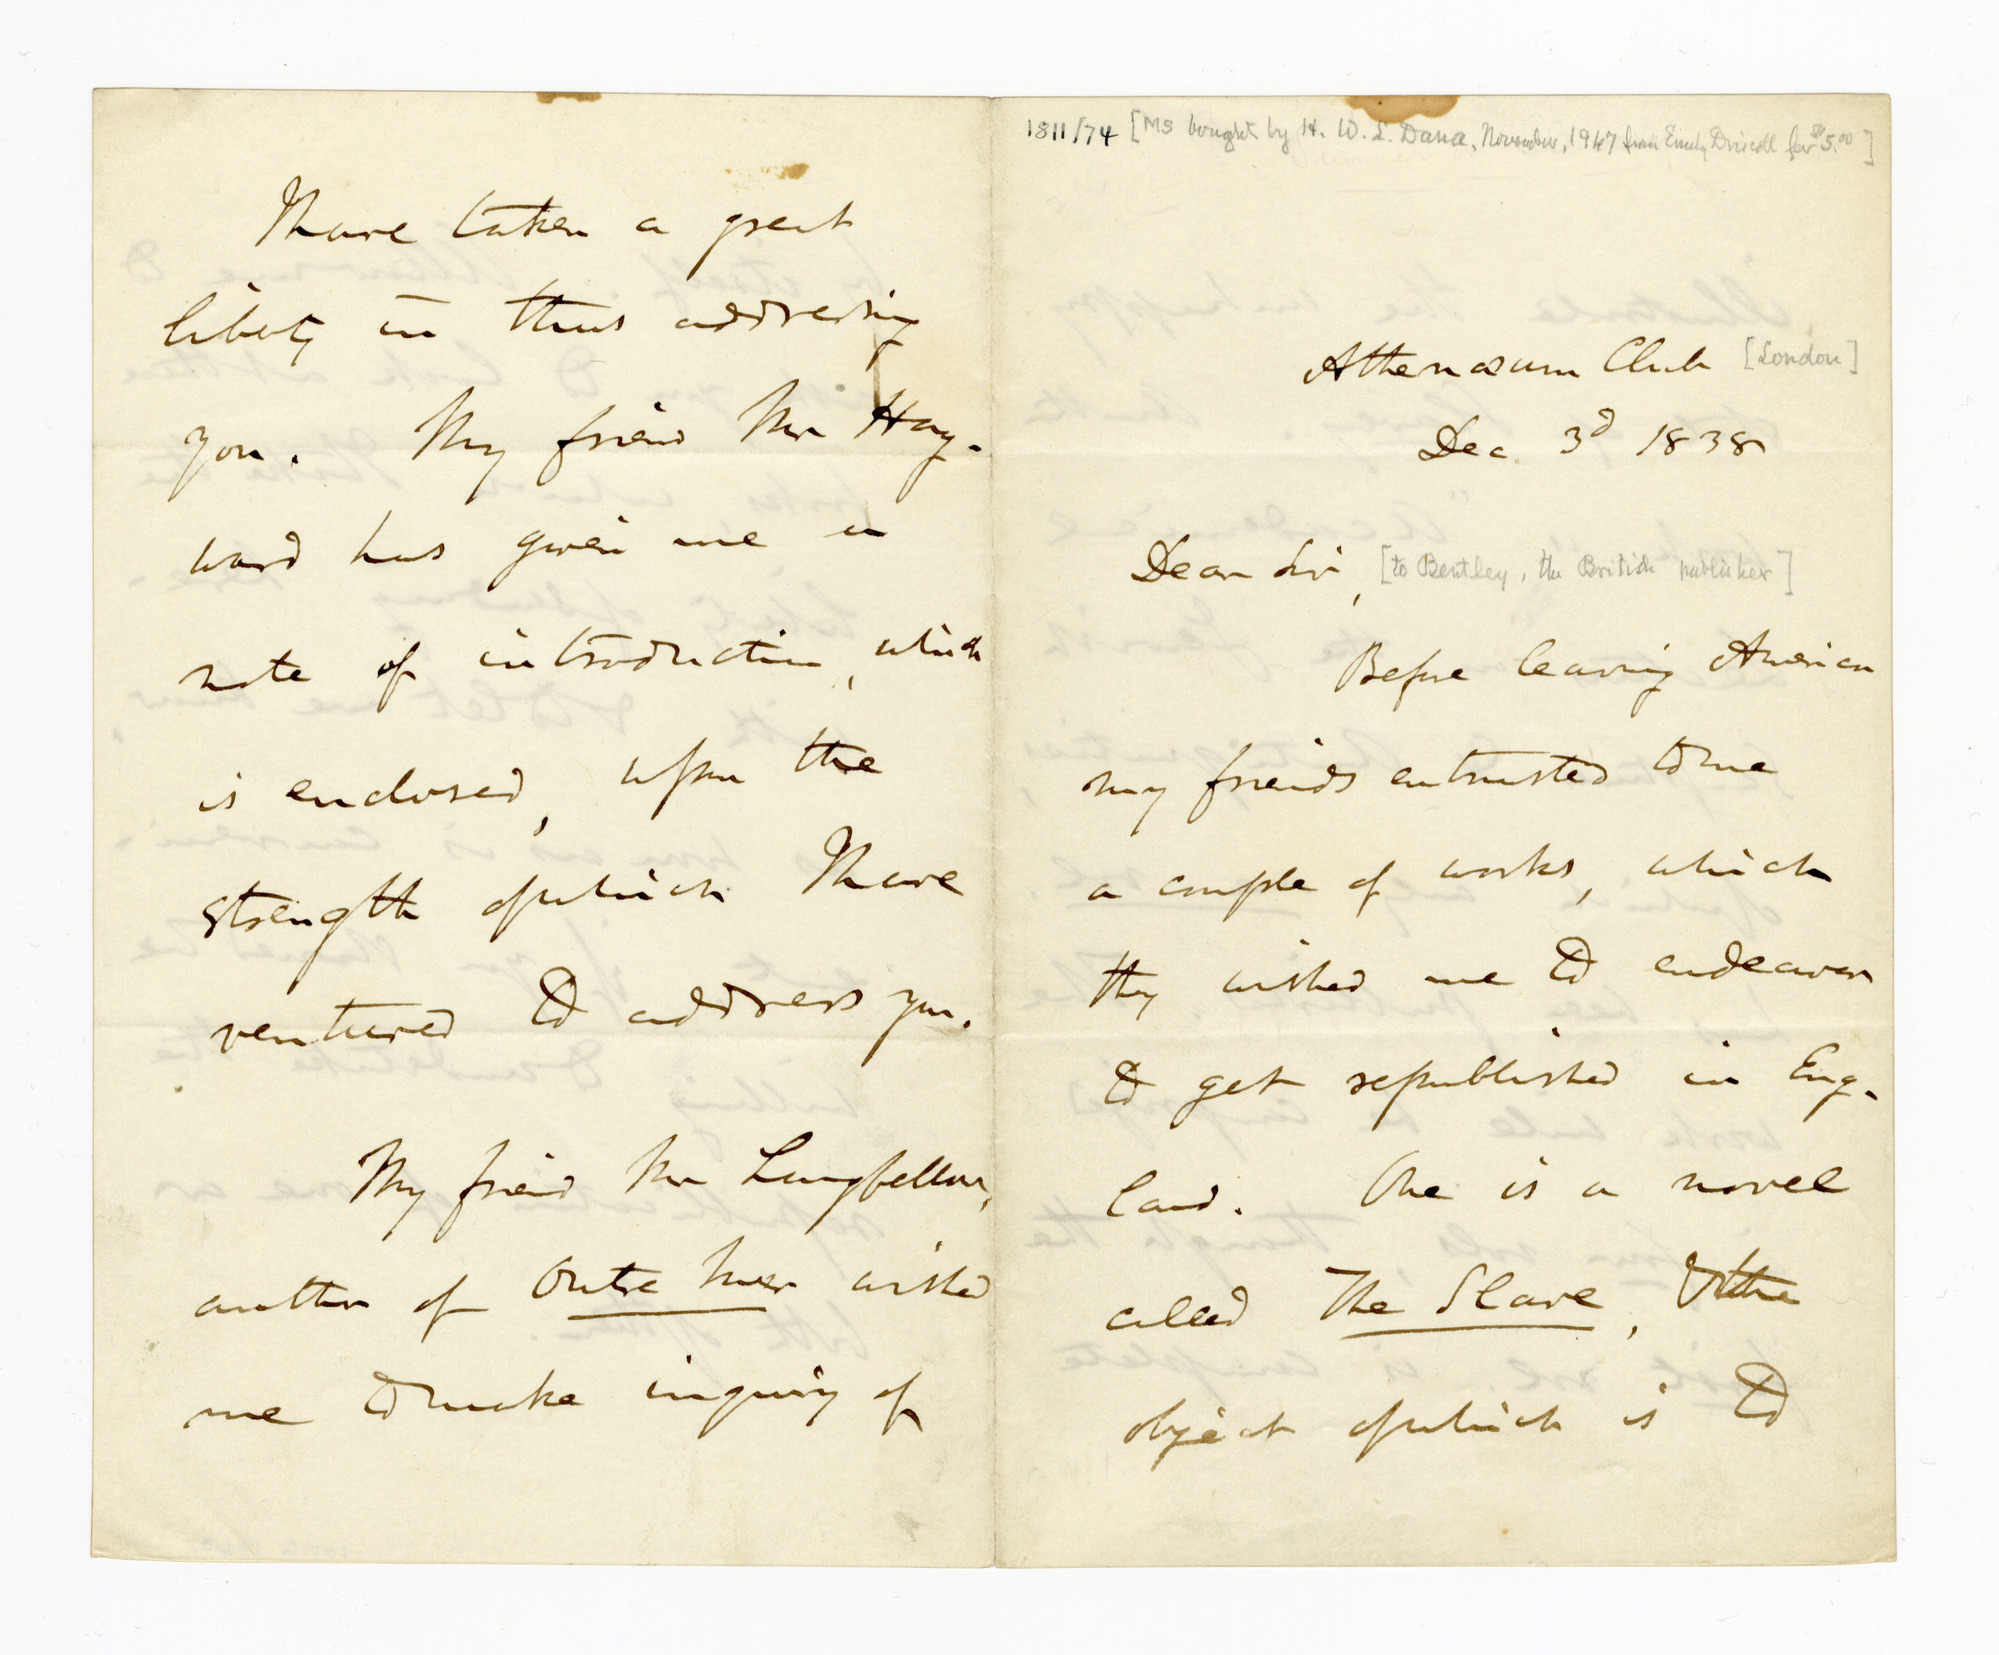 1811/74 [MS bought by H. W. L. Dana, November, 1947 from Emily Driscoll for $5.00]
Athenæum Club [London]
Dec. 3d 1838
Dear Sir, [to Bentley, the British publisher]
Before leaving America
my friends entrusted to me
a couple of works, which
they wished me to endeavor
to get republished in Eng-
land. One is a novel
called The Slave, & the
object of which is to
I have taken a great
liberty in thus addressing
you. My friend Mr Hay-
ward has given me a
note of introduction, which
is enclosed, upon the
strength of which I have
ventured to address you.
My friend Mr Longfellow,
author of Outre Mer wished
me to make inquiry of